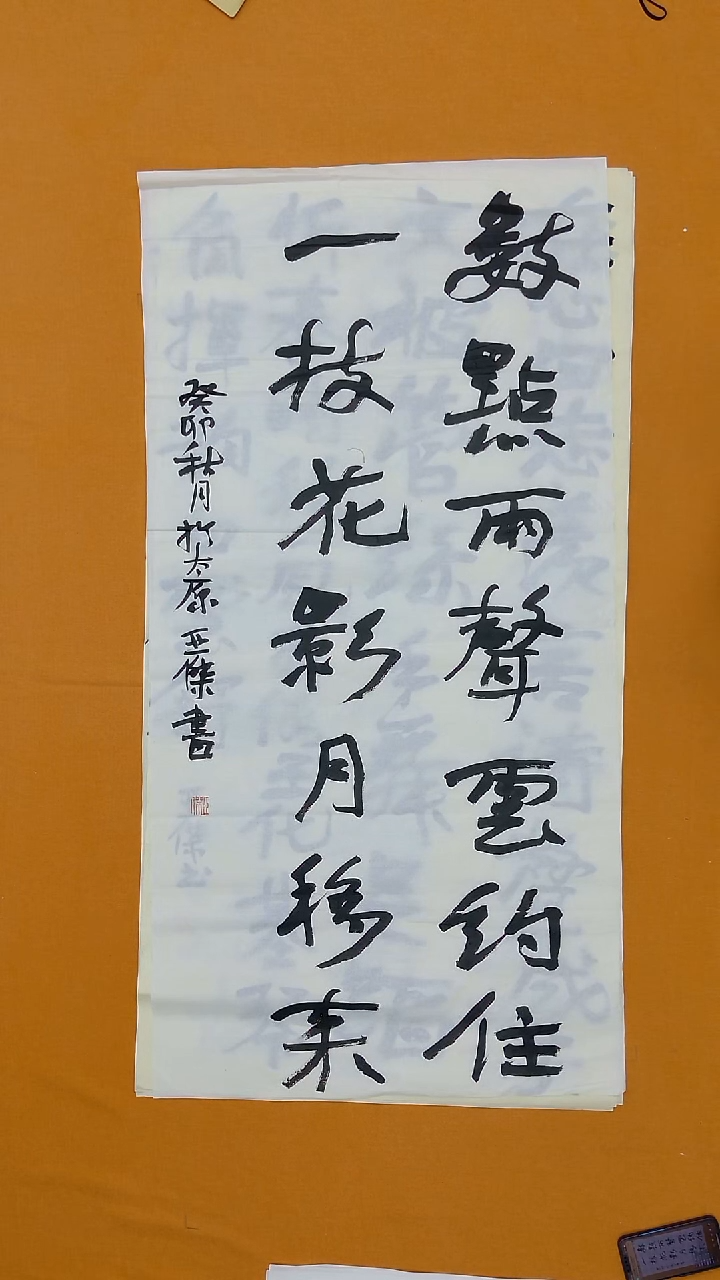 數點雨聲雲約住
一枝花影月移來
癸卯秋月於太原亚傑書